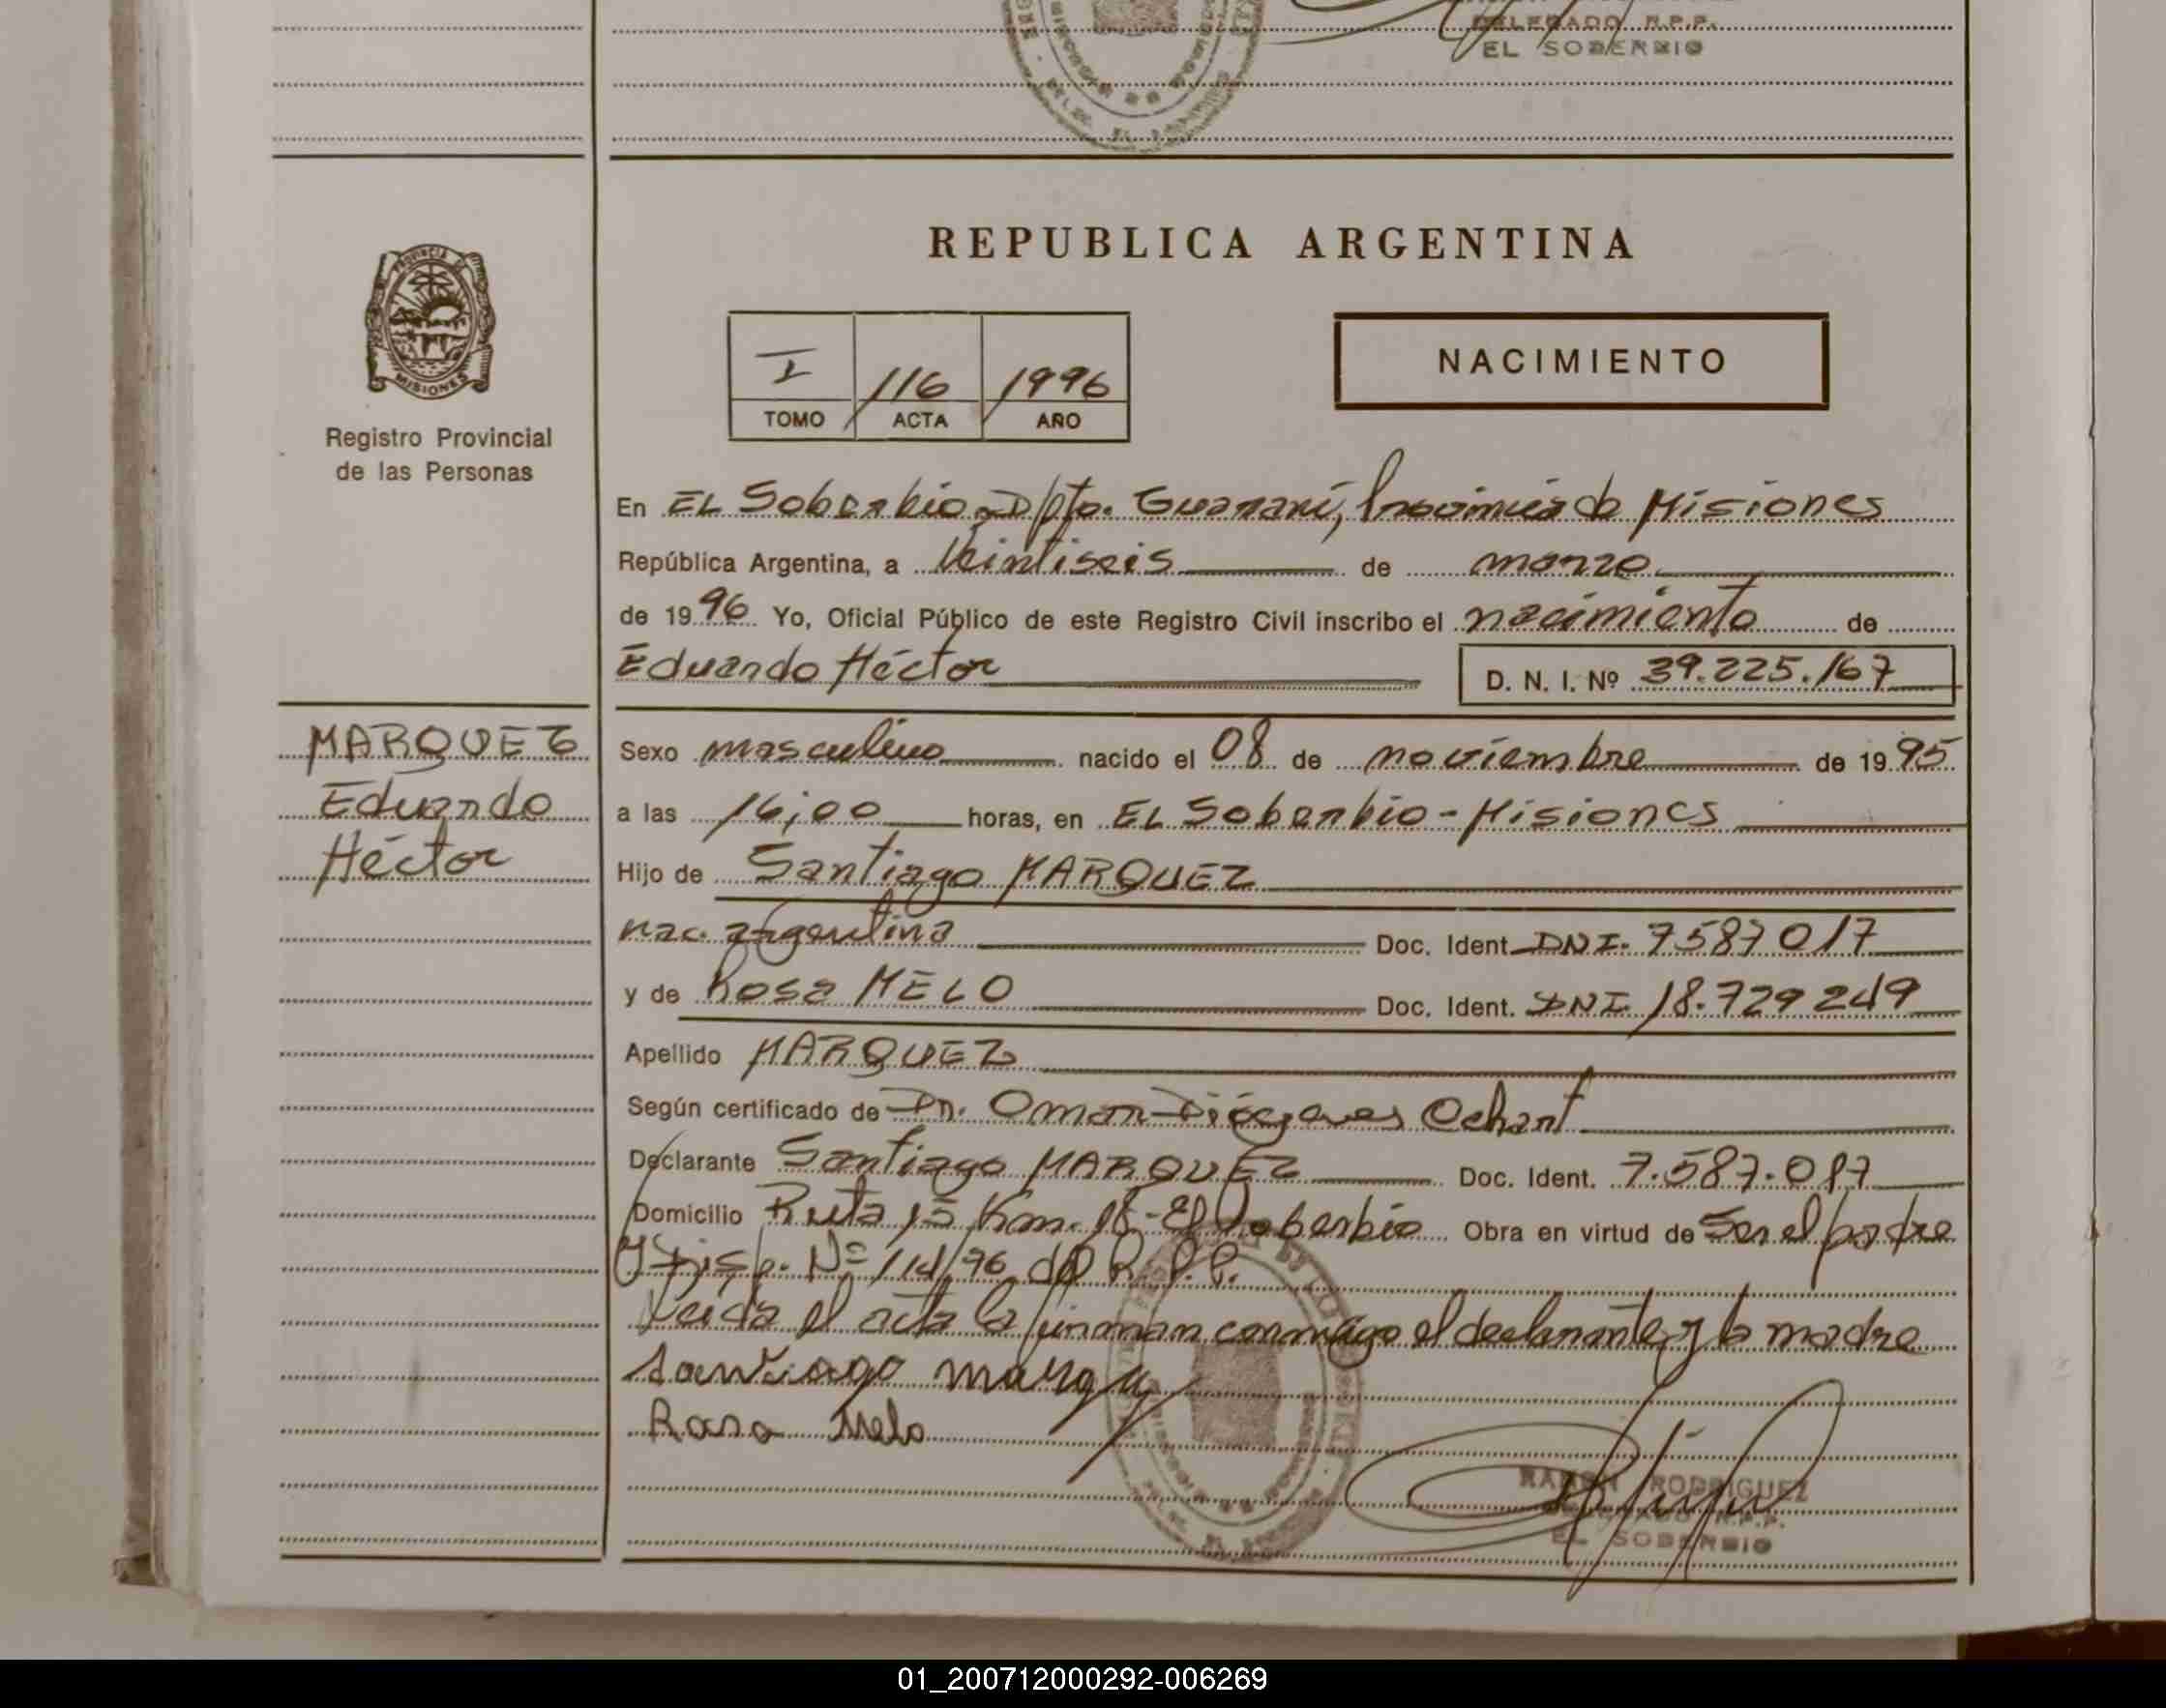 DELEGADO R.P.P.
EL SOBERBIO
REPUBLICA ARGENTINA
PROVINCIA DE
MISIONES
Registro Provincial
de las Personas
I 116 1996
TOMO ACTA AÑO
NACIMIENTO
En EL Soberbio Dpto. Guaraní, Provincia de Misiones
República Argentina, a Veintiseis de marzo
de 1996 Yo, Oficial Público de este Registro Civil inscribo el nacimiento de
Eduardo Héctor D. N. I. Nº 39.225.167
MARQUEZ
Eduardo
Héctor
Sexo masculino nacido el 08 de noviembre de 1995
a las 16,00 horas, en EL Soberbio - Misiones
Hijo de Santiago MARQUEZ
nac. argentina Doc. Ident. DNI. 7587017
y de Rosa MELO Doc. Ident. DNI 18.729249
Apellido MARQUEZ
Según certificado de Dr. Omar Diógenes Ochart
Declarante Santiago MARQUEZ Doc. Ident. 7.587.017
Domicilio Ruta Km. 18 - El Soberbio Obra en virtud de Ser el padre
Y Disp. Nº 114/96 del R.P.P.
Leida el acta la firman conmigo el declarante y la madre
Santiago
Rosa Melo
RAMON RODRIGUEZ
DELEGADO R.P.P.
EL SOBERBIO
01_200712000292-006269